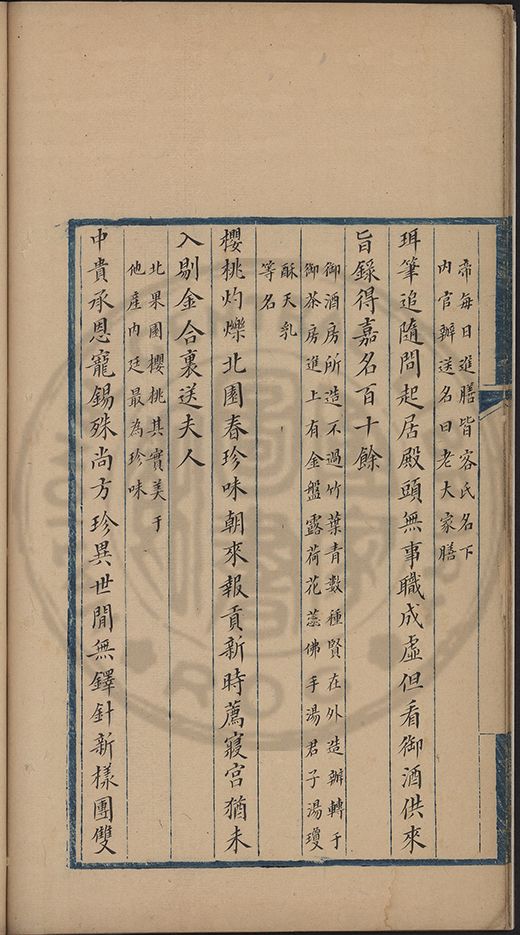 帝每日進膳皆客氏名下
內官辦送名曰老大家膳
珥筆追隨問起居殿頭無事職成虛但看御酒供來
旨錄得嘉名百十餘
御酒房所造不過竹葉青數種賢在外造辦轉于
御茶房進上有金盤露荷花蕊佛手湯君子湯瓊
酥天乳
等名
櫻桃灼爍北園春珍味朝來報貢新時薦寢宮猶未
入剔金合裏送夫人
北果園櫻桃其實美于
他產內廷最為珍味
中貴承恩寵錫殊尚方珍異世間無鐸針新樣團雙